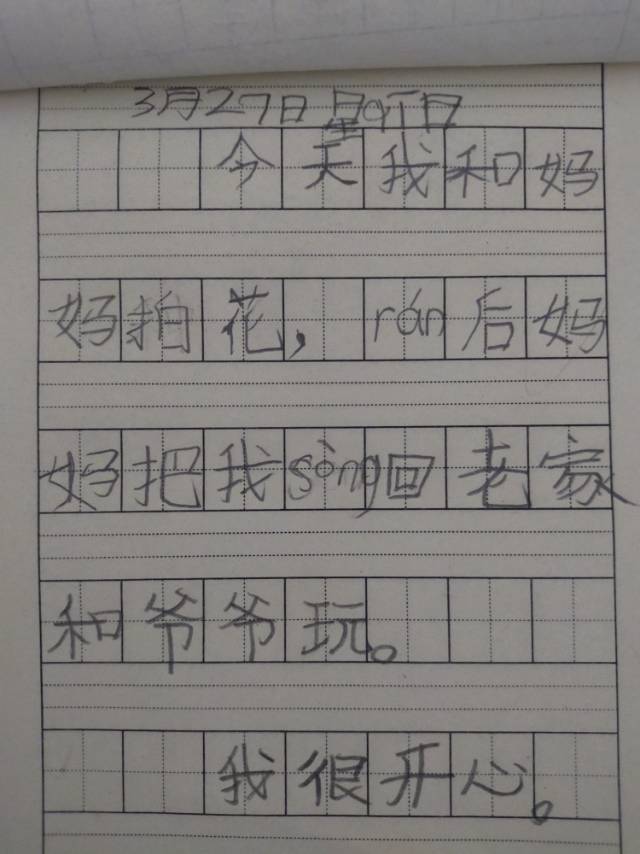 3月27日 星qī日
今天我和妈
妈拍花，rán后妈
妈把我sòng回老家
和爷爷玩。
我很开心。